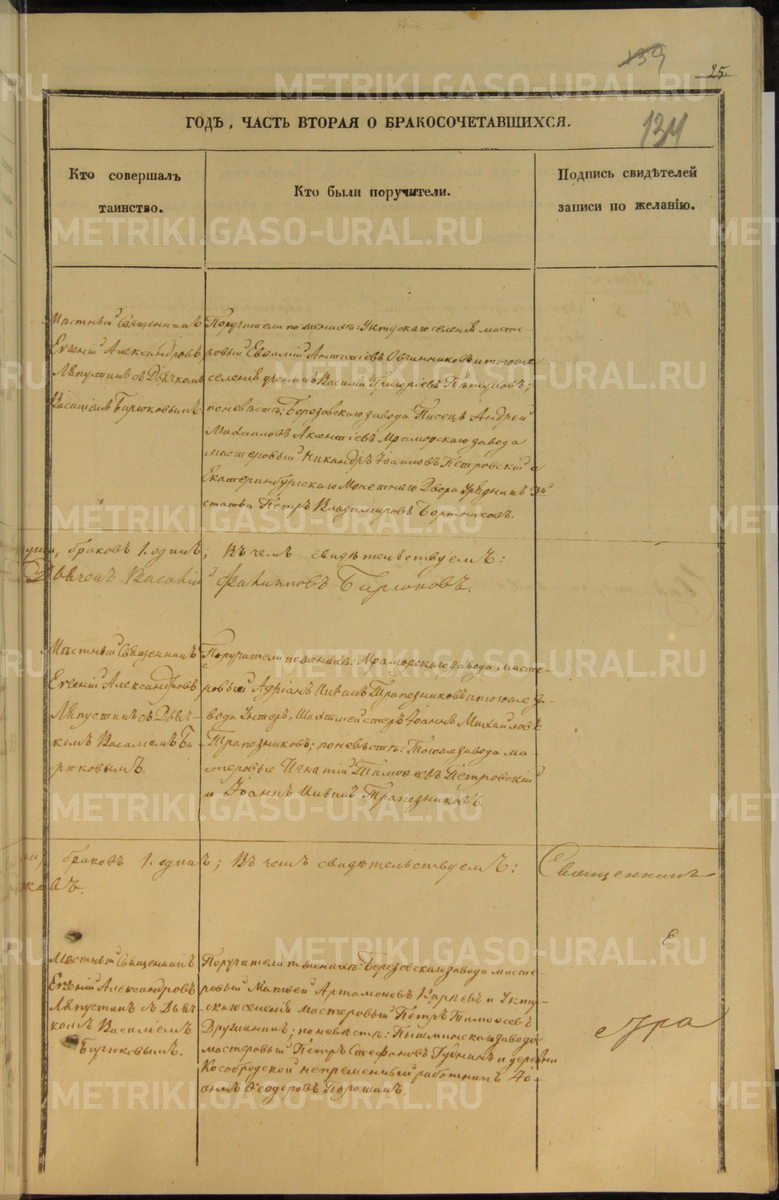 139
25.
134
ГОДЪ, ЧАСТЬ ВТОРАЯ О БРАКОСОЧЕТАВШИХСЯ.
Кто совершалъ
таинство.
Кто были поручители.
Подпись свидѣтелей
записи по желанію.
Мѣстный Священникъ
Евгеній Александровъ
Ляпустинъ съ Дьячкомъ
Василіемъ Бирюковымъ
Поручители по женихѣ: Уктускаго селенія масте-
ровый Евѳимій Овчинниковъ и тогоже
селенія Василій Григорьевъ Пѣтуховъ;
по невѣстѣ: Березовскаго завода Писецъ Андрей
Михайловъ Мраморскаго завода
мастеровый Никандръ Іоанновъ Петровскій и
Екатеринбургскаго Монетнаго Двора Урядникъ
статьи Петръ Владиміровъ Бортниковъ.
браковъ 1. одинъ; Въ чемъ свидѣтельствуемъ:
Дьячекъ Василій Филипповъ Бирюковъ.
Мѣстный Священникъ
Евгеній Александровъ
Ляпустинъ съ Дьяч-
комъ Василіемъ Би-
рюковымъ.
Поручители по женихѣ: Мраморскаго завода масте-
ровый Адріанъ Трапезниковъ и тогоже за-
вода Унтеръ-Шихтмейстеръ Іоаннъ Михайловъ
Трапезниковъ; по невѣстѣ: Тогоже завода ма-
стеровые Игнатій Петровскій
и Іоаннъ Трапезниковъ.
браковъ 1. одинъ; Въ чемъ свидѣтельствуемъ:
Священникъ
Е
Мѣстный Священникъ
Евгеній Александровъ
Ляпустинъ съ Дьяч-
комъ Василіемъ
Бирюковымъ.
Поручители по женихѣ: Березовскаго завода масте-
ровый Матвей Артамоновъ и Укту-
скаго селенія мастеровый Петръ Тимоѳеевъ
Дружининъ; по невѣстѣ: Пышминскаго завода
мастеровый Петръ Стефановъ и деревни
Кособродской непремѣнный работникъ Іо-
аннъ Ѳеодоровъ Порошинъ
METRIKI.GASO-URAL.RU